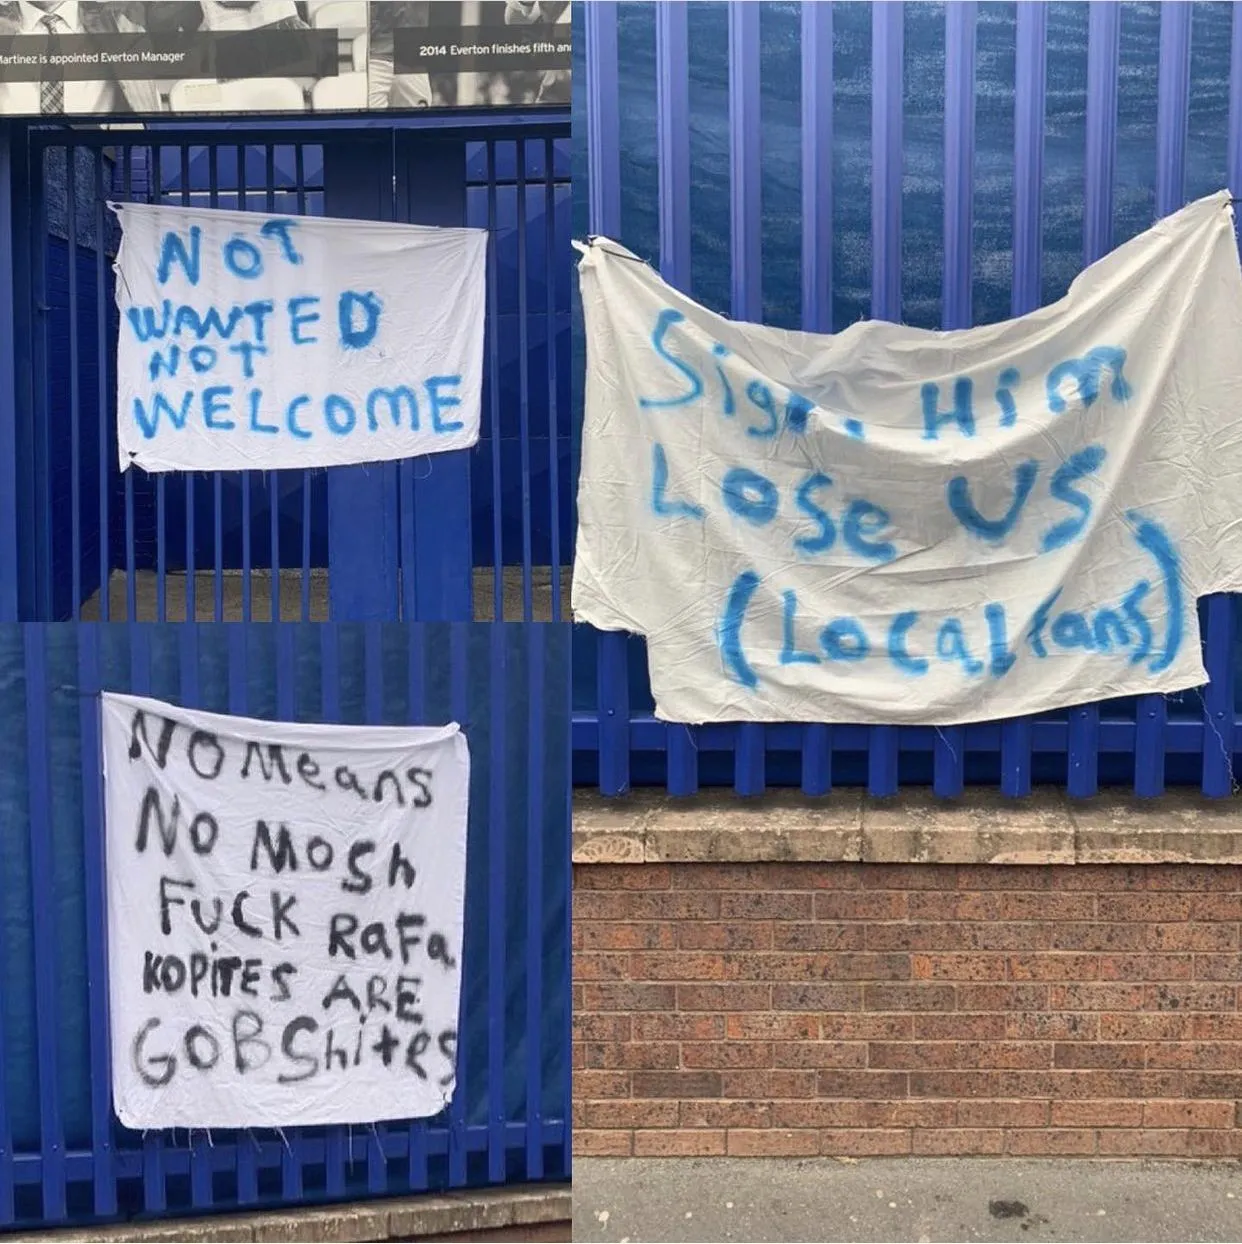 Martinez is appointed Everton Manager
2014 Everton finishes fifth and
NOT
WANTED
NOT
WELCOME
Sign Him
Lose US
(Local fans)
NO Means
NO MOSh
FUCK RaFa
KOPITES ARE
GOBShites